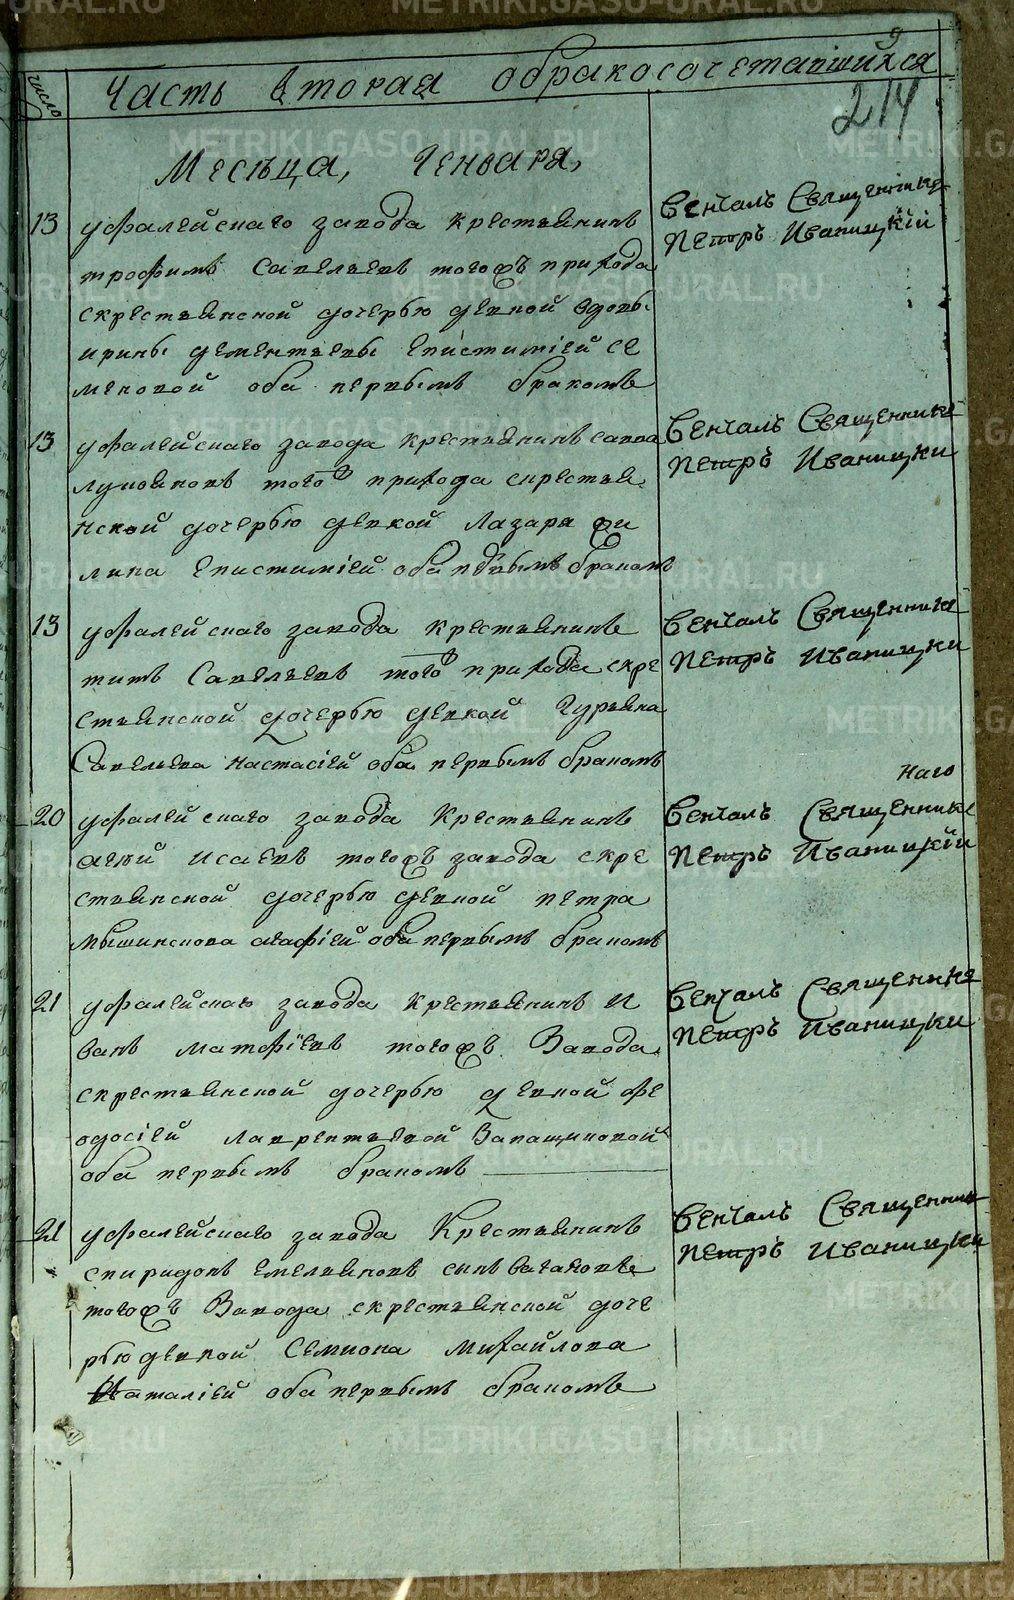 9
число
Часть вторая обракосочетавшихся
214
Месяца, Генваря,
13 уфалейскаго завода крестьянинъ
трофимъ Савельевъ тогожъ прихода
скрестьянской дочерью девкой вдовы
ирины дементьевы Епистимiей се
меновой оба первымъ бракомъ
Венчалъ Священникъ
Петръ Иваницкiй
13 уфалейскаго завода крестьянинъ савва
лукояновъ того ж прихода скрестья
нской дочерью девкой Лазаря фи
липа Епистимiей оба первымъ бракомъ
Венчалъ Священникъ
Петръ Иваницки
13 уфалейскаго завода крестьянинъ
титъ Савельевъ того ж прихода скре
стьянской дочерью девкой Гурьяна
Савельева Настасiей оба первымъ бракомъ
Венчалъ Священникъ
Петръ Иваницки
наго
20 уфалейскаго завода Крестьянинъ
исаевъ тогожъ завода скре
стьянской дочерью девкой петра
мышинскова агафiей оба первымъ бракомъ
Венчалъ Священникъ
Петръ Иваницкiй
21 уфалейскаго завода крестьянинъ и
ванъ матфiевъ тогожъ Завода
скрестьянской дочерью девкой фе
одосiей лаврентьевой
оба первымъ бракомъ
Венчалъ Священникъ
Петръ Иваницки
21 уфалейскаго завода Крестьянинъ
спиридонъ емельяновъ сынъ
тогожъ Завода скрестьянской доче
рью девкой Семиона михайлова
Наталiей оба первымъ бракомъ
Венчалъ Священникъ
Петръ Иваницки
METRIKI.GASO-URAL.RU